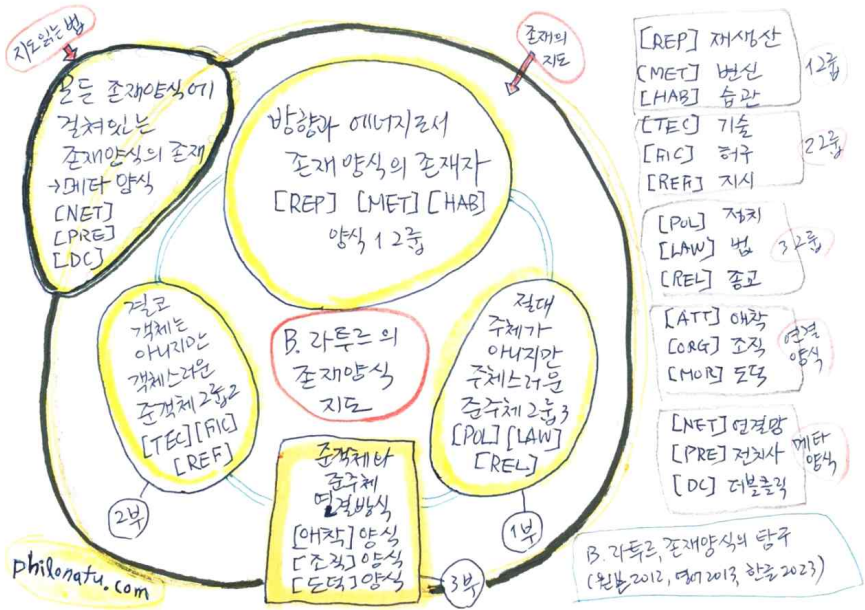 지도읽는 법
모든 존재양식에
걸쳐있는
존재양식의 존재
→메타 양식
[NET]
[PRE]
[DC]
존재의
지도
방향과 에너지로서
존재 양식의 존재자
[REP] [MET] [HAB]
양식 1그룹
결코
객체는
아니지만
객체스러운
준객체 그룹2
[TEC] [FIC]
[REF]
2부
B. 라투르의
존재양식
지도
절대
주체가
아니지만
주체스러운
준주체 그룹3
[POL] [LAW]
[REL]
1부
준객체와
준주체
연결방식
[애착] 양식
[조직] 양식
[도덕] 양식
3부
philonatu.com
[REP] 재생산
[MET] 변신
[HAB] 습관
1그룹
[TEC] 기술
[FIC] 허구
[REF] 지시
2그룹
[POL] 정치
[LAW] 법
[REL] 종교
3그룹
[ATT] 애착
[ORG] 조직
[MOR] 도덕
연결
양식
[NET] 연결망
[PRE] 전치사
[DC] 더블클릭
메타
양식
B. 라투르, 존재양식의 탐구
(원본 2012, 영어 2013, 한글 2023)